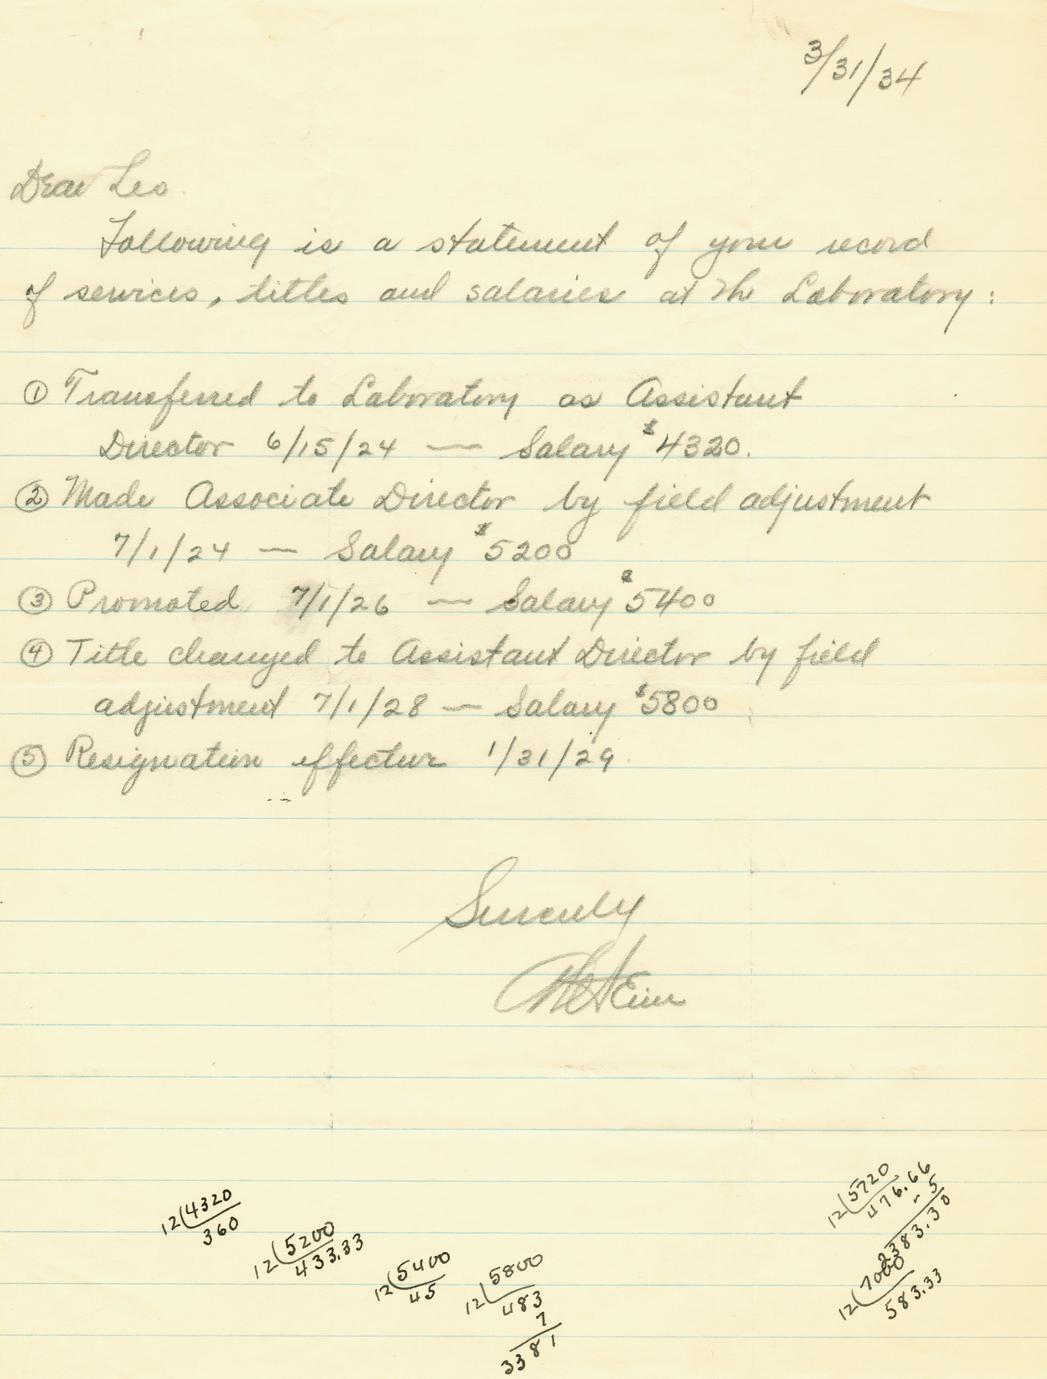 3/31/34
Dear Leo
Following is a statement of your record
of services, titles and salaries at the Laboratory:
① Transferred to Laboratory as Assistant
Director 6/15/24 — Salary $4320.
② Made Associate Director by field adjustment
7/1/24 — Salary $5200
③ Promoted 7/1/26 — Salary $5400
④ Title changed to Assistant Director by field
adjustment 7/1/28 — Salary $5800
⑤ Resignation effective 1/31/29
Sincerely
12(4320
360
12(5200
433.33
12(5400
45
12(5800
483
7
3381
12(5720
476.66
5
2383.30
12(7000
583.33